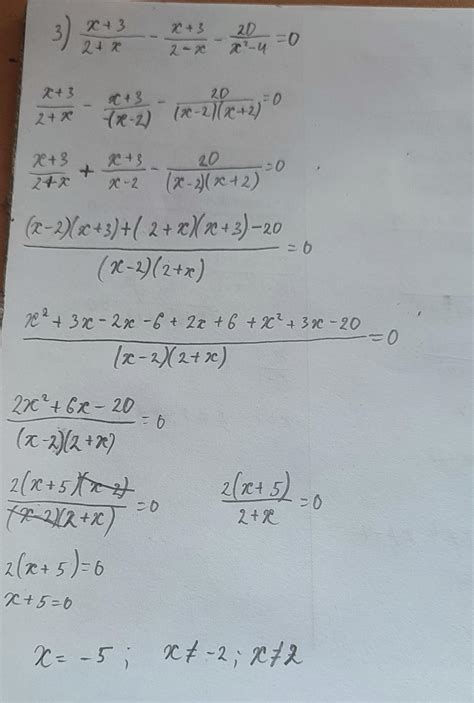 3) (x+3)/(2+x) - (x+3)/(2-x) - 20/(x²-4) = 0
(x+3)/(2+x) - (x+3)/(-(x-2)) - 20/((x-2)(x+2)) = 0
(x+3)/(2+x) + (x+3)/(x-2) - 20/((x-2)(x+2)) = 0
((x-2)(x+3)+(2+x)(x+3)-20)/((x-2)(2+x)) = 0
(x²+3x-2x-6+2x+6+x²+3x-20)/((x-2)(2+x)) = 0
(2x²+6x-20)/((x-2)(2+x)) = 0
(2(x+5)(x-2))/((x-2)(2+x)) = 0 (2(x+5))/(2+x) = 0
2(x+5)=0
x+5=0
x = -5; x ≠ -2; x ≠ 2